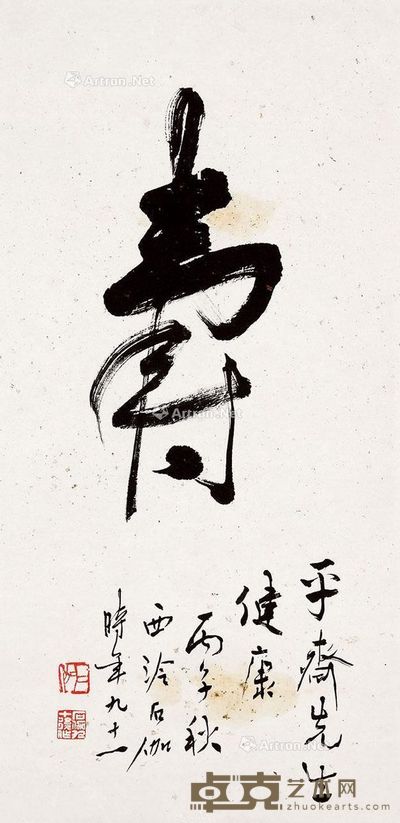 壽
平齋先生
健康
丙午秋
西泠石伽
時年九十一
Artron.Net
Artron.Net
Artron.Net
卓克艺术网
zhuokearts.com